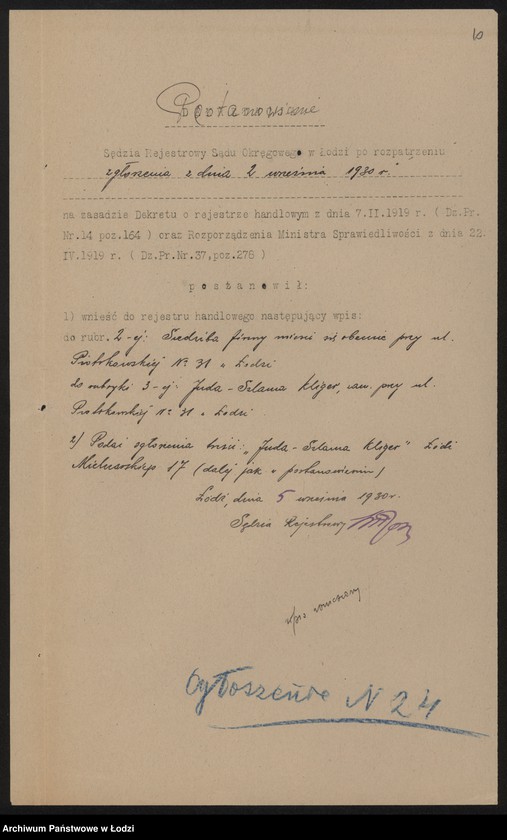 10
Postanowienie
Sędzia Rejestrowy Sądu Okręgowego w Łodzi po rozpatrzeniu
zgłoszenia z dnia 2 września 1930 r.
na zasadzie Dekretu o rejestrze handlowym z dnia 7.II.1919 r. ( Dz.Pr.
Nr.14 poz.164 ) oraz Rozporządzenia Ministra Sprawiedliwości z dnia 22.
IV.1919 r. ( Dz.Pr.Nr.37,poz.278 )
p o s t a n o w i ł :
1) wnieść do rejestru handlowego następujący wpis:
do rubr. 2-ej: Siedziba firmy mieści się obecnie przy ul.
Piotrkowskiej № 31 w Łodzi
do rubryki 3-ej: Juda-Szlama Kliger, zam. przy ul.
Piotrkowskiej № 31 w Łodzi
2) zgłoszenia treści: "Juda-Szlama Kliger" Łódź
17 (dalej jak w postanowieniu)
Łódź, dnia 5 września 1930 r.
Sędzia Rejestrowy
wpis wniesiony
Ogłoszenie N 24
Archiwum Państwowe w Łodzi